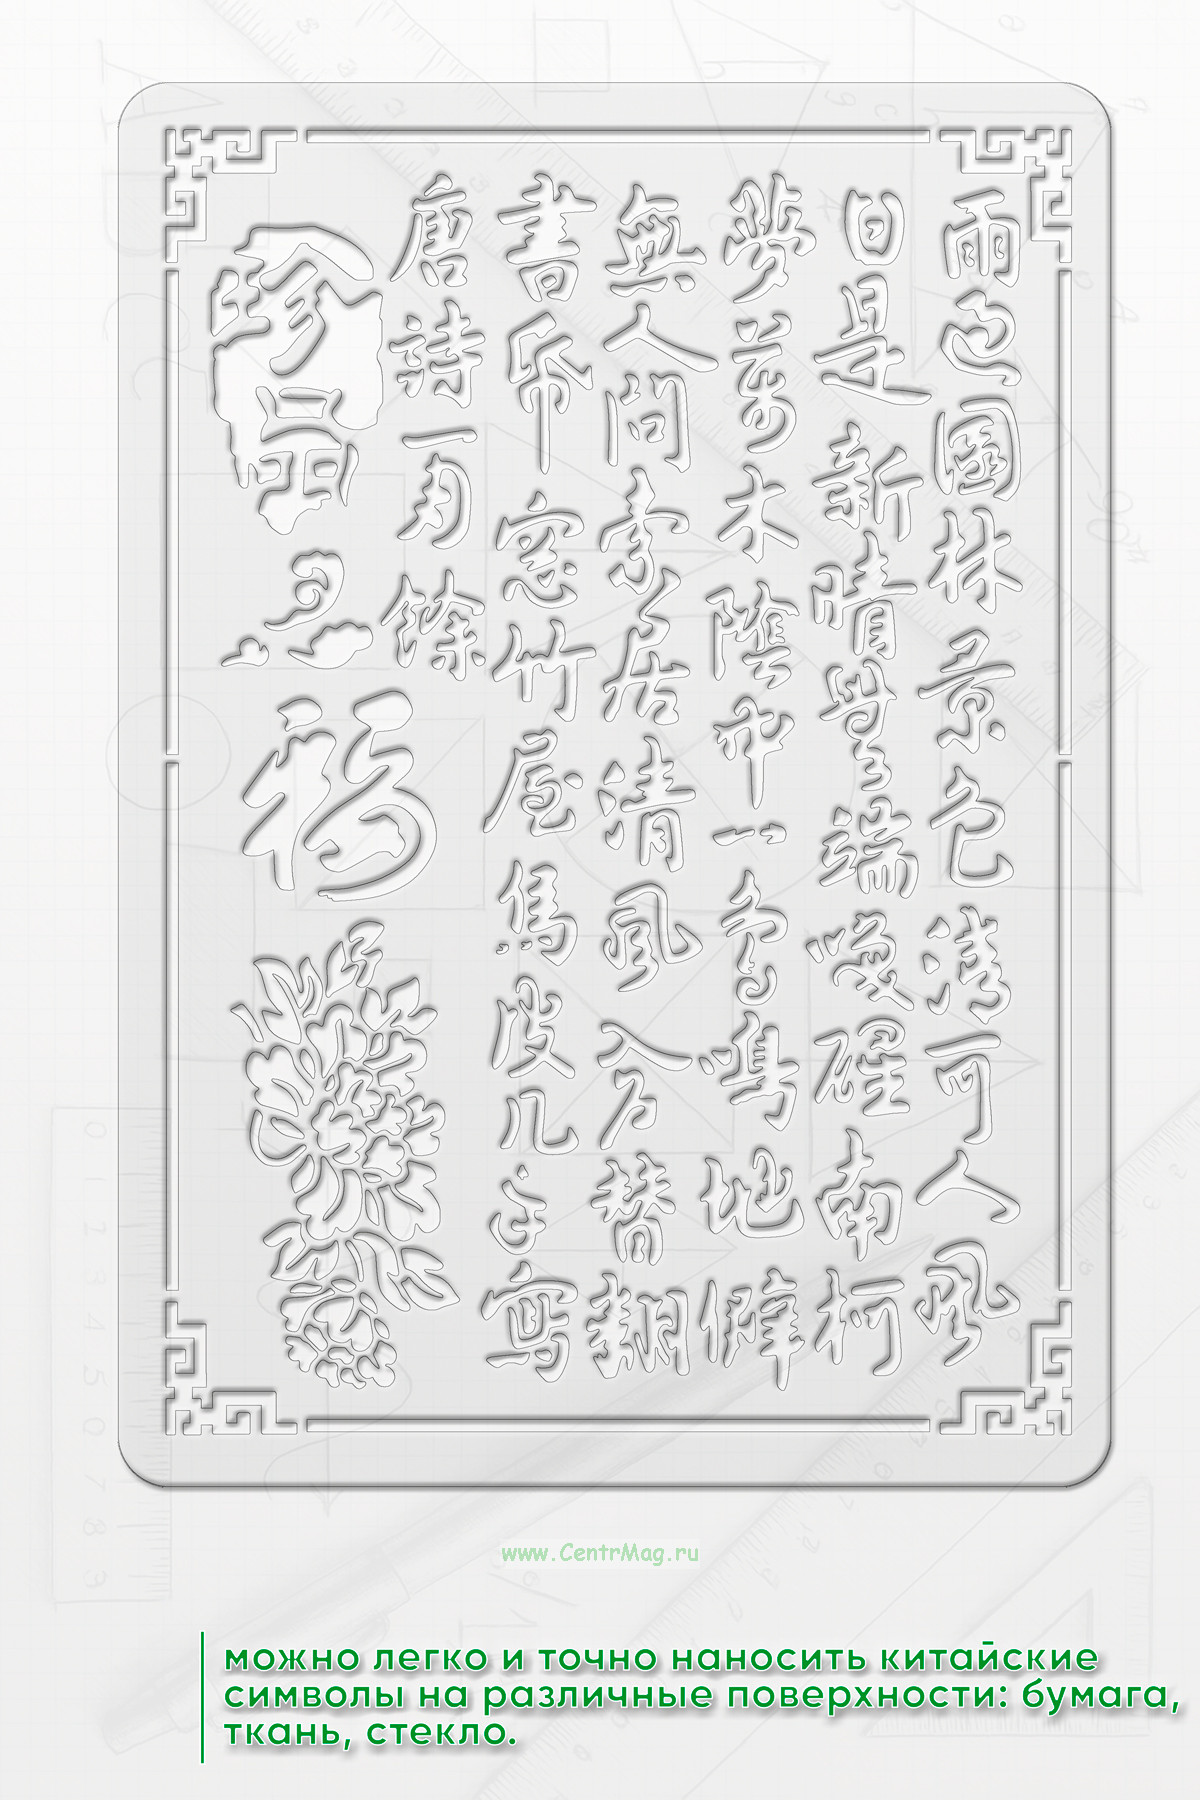 雨过園林景色清可人風
日是新晴覺來端喚醒南柯
夢萬木陰中一鳥鳴地僻
無人問索居清風入户替翻
書紙窓竹屋烏皮几手寫
唐詩一百餘
珍品
福
www.CentrMag.ru
можно легко и точно наносить китайские
символы на различные поверхности: бумага,
ткань, стекло.